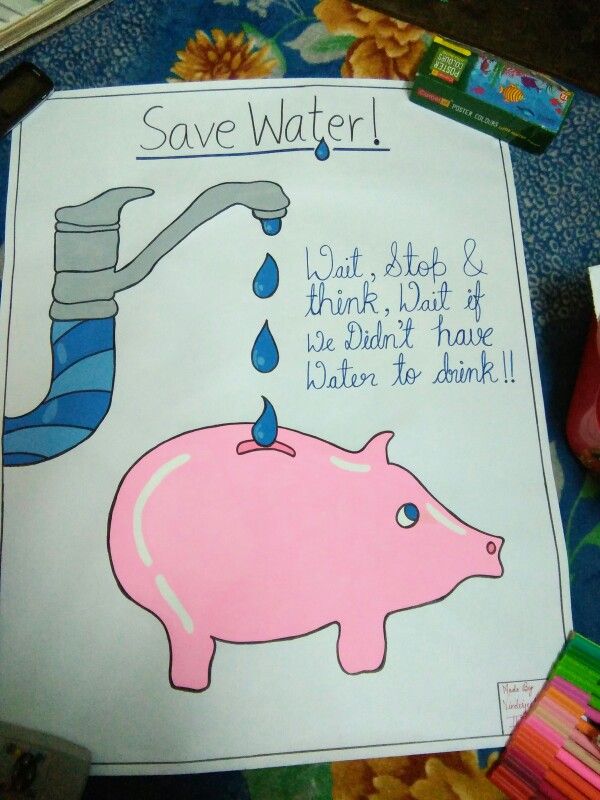 Save Water!
Wait, Stop &
think, Wait if
We Didn't have
Water to drink!!
POSTER
COLOURS
POSTER COLOURS
Made By